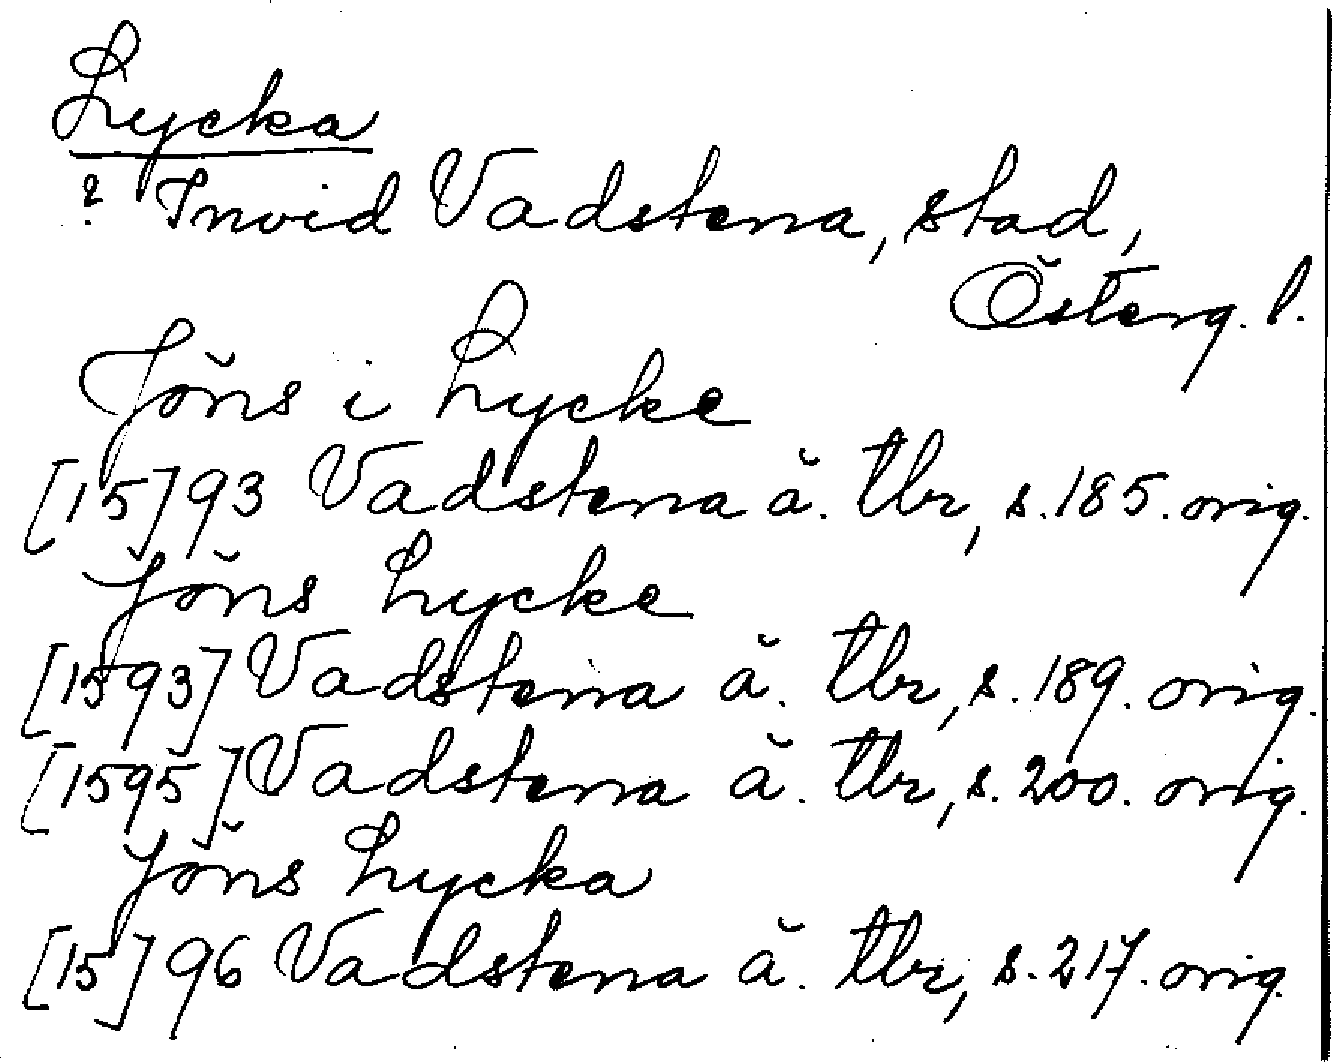 Lycka
? Invid Vadstena, stad,
Österg. l.
Jöns i Lycke
[15]93 Vadstena ä. tbr, s. 185. orig.
Jöns Lycke
[1593] Vadstena ä. tbr, s. 189. orig.
[1595] Vadstena ä. tbr, s. 200. orig.
Jöns Lycka
[15]96 Vadstena ä. tbr, s. 217. orig.